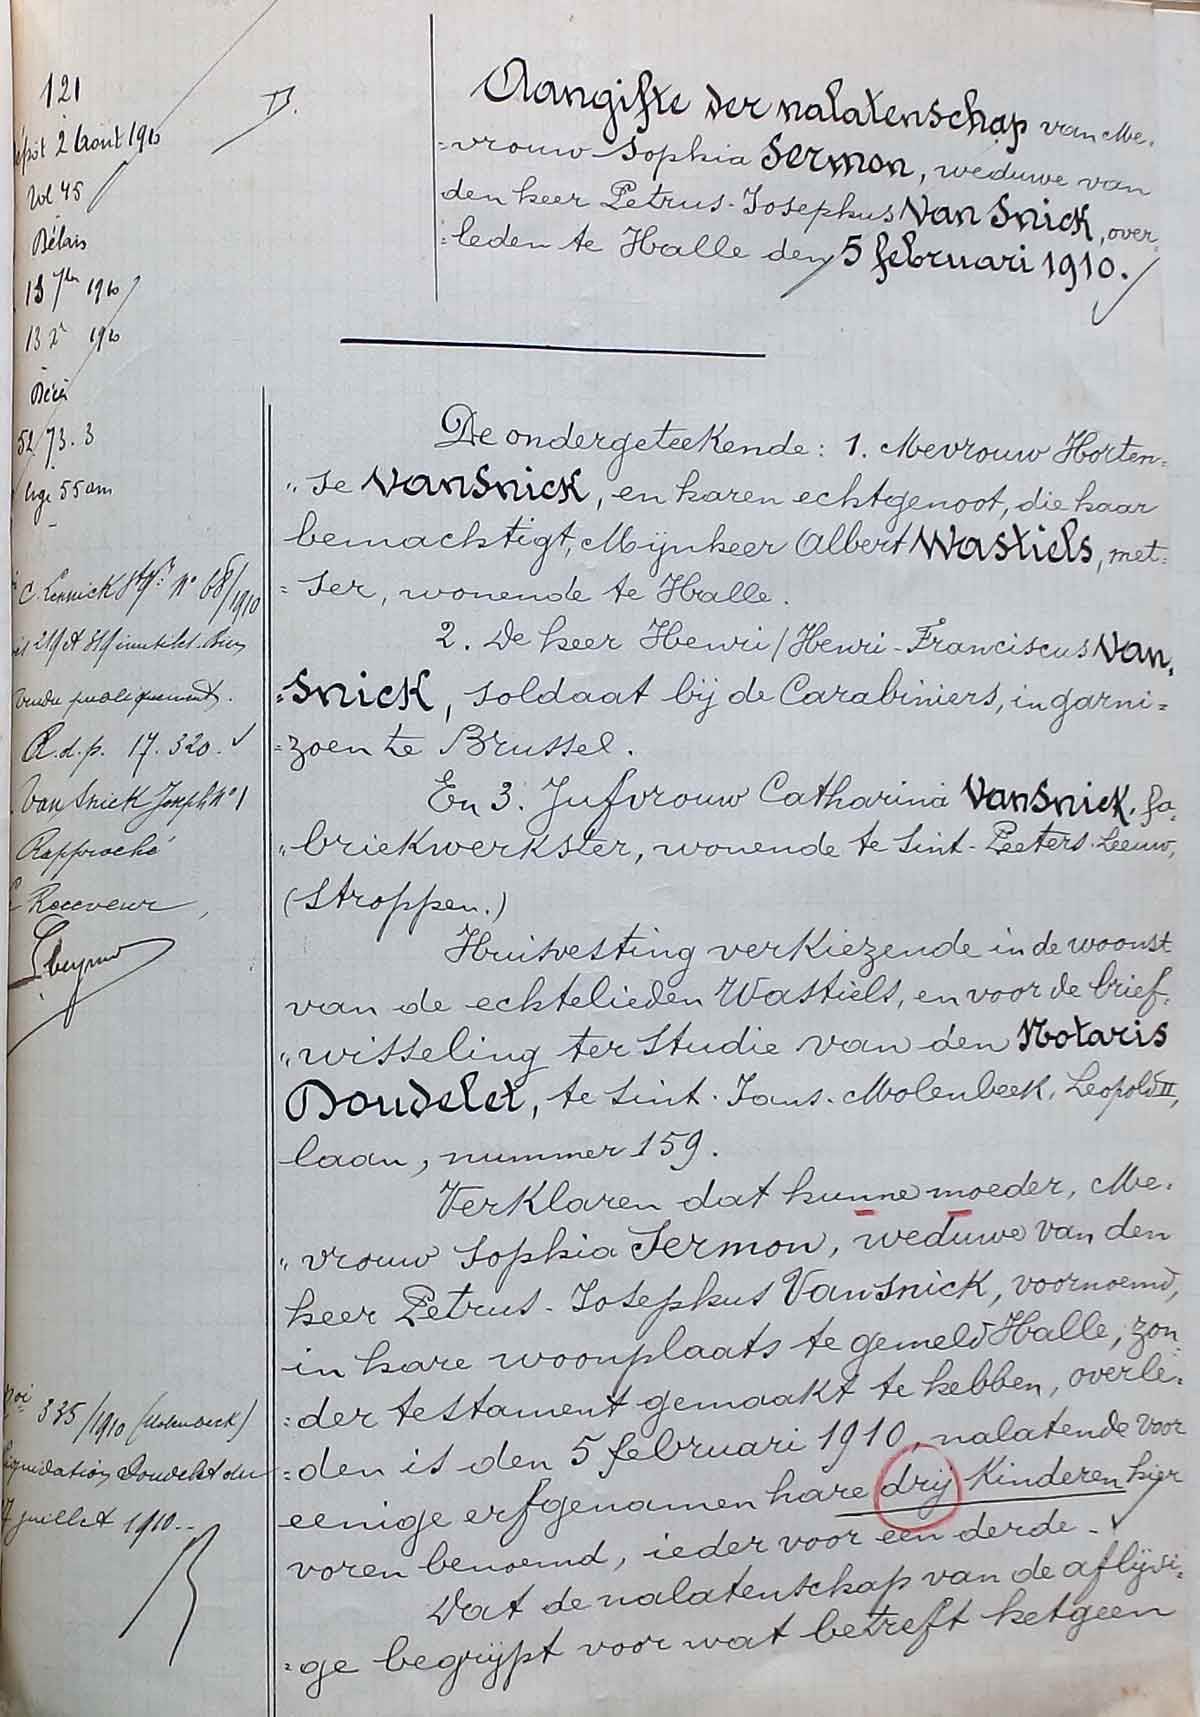 121
D.
Dépôt 2 Août 1910
Vol 45
Délais
13 7bre 1910
13 Xr 1910
Décès
52/73.3
âge 55 ans
C. Lennick St Qn no 68/1910
vendu publiquement.
R.d.p. 17.320.
Van Snick Joseph no 1
Rapproché
Le Receveur
335/1910 (Molenbeek)
liquidation Doudelet du
7 juillet 1910..
Aangifte der nalatenschap van Me-
=vrouw Sophia Sermon, weduwe van
den heer Petrus-Josephus Van Snick, over-
=leden te Halle den 5 februari 1910.
De ondergeteekende: 1. Mevrouw Horten-
"se VanSnick, en haren echtgenoot, die haar
bemachtigt, Mijnheer Albert Wastiels, met-
=ser, wonende te Halle.
2. De heer Henri/Henri-Franciscus Van-
=Snick, soldaat bij de Carabiniers, in garni=
=zoen te Brussel.
En 3. Jufvrouw Catharina VanSnick, fa-
"briekwerkster, wonende te Sint-Peeters-Leeuw,
(Stroppen.)
Huisvesting verkiezende in de woonst
van de echtelieden Wastiels, en voor de brief-
"wisseling ter studie van den Notaris
Doudelet, te Sint-Jans-Molenbeek, Leopold II,
laan, nummer 159.
Verklaren dat hunne moeder, Me-
"vrouw Sophia Sermon, weduwe van den
heer Petrus-Josephus VanSnick, voornoemd,
in hare woonplaats te gemeld Halle, zon-
=der testament gemaakt te hebben, overle-
=den is den 5 februari 1910, nalatende voor
eenige erfgenamen hare drij kinderen hier
voren benoemd, ieder voor een derde.-
Dat de nalatenschap van de aflijvi-
=ge begrijpt voor wat betreft hetgeen